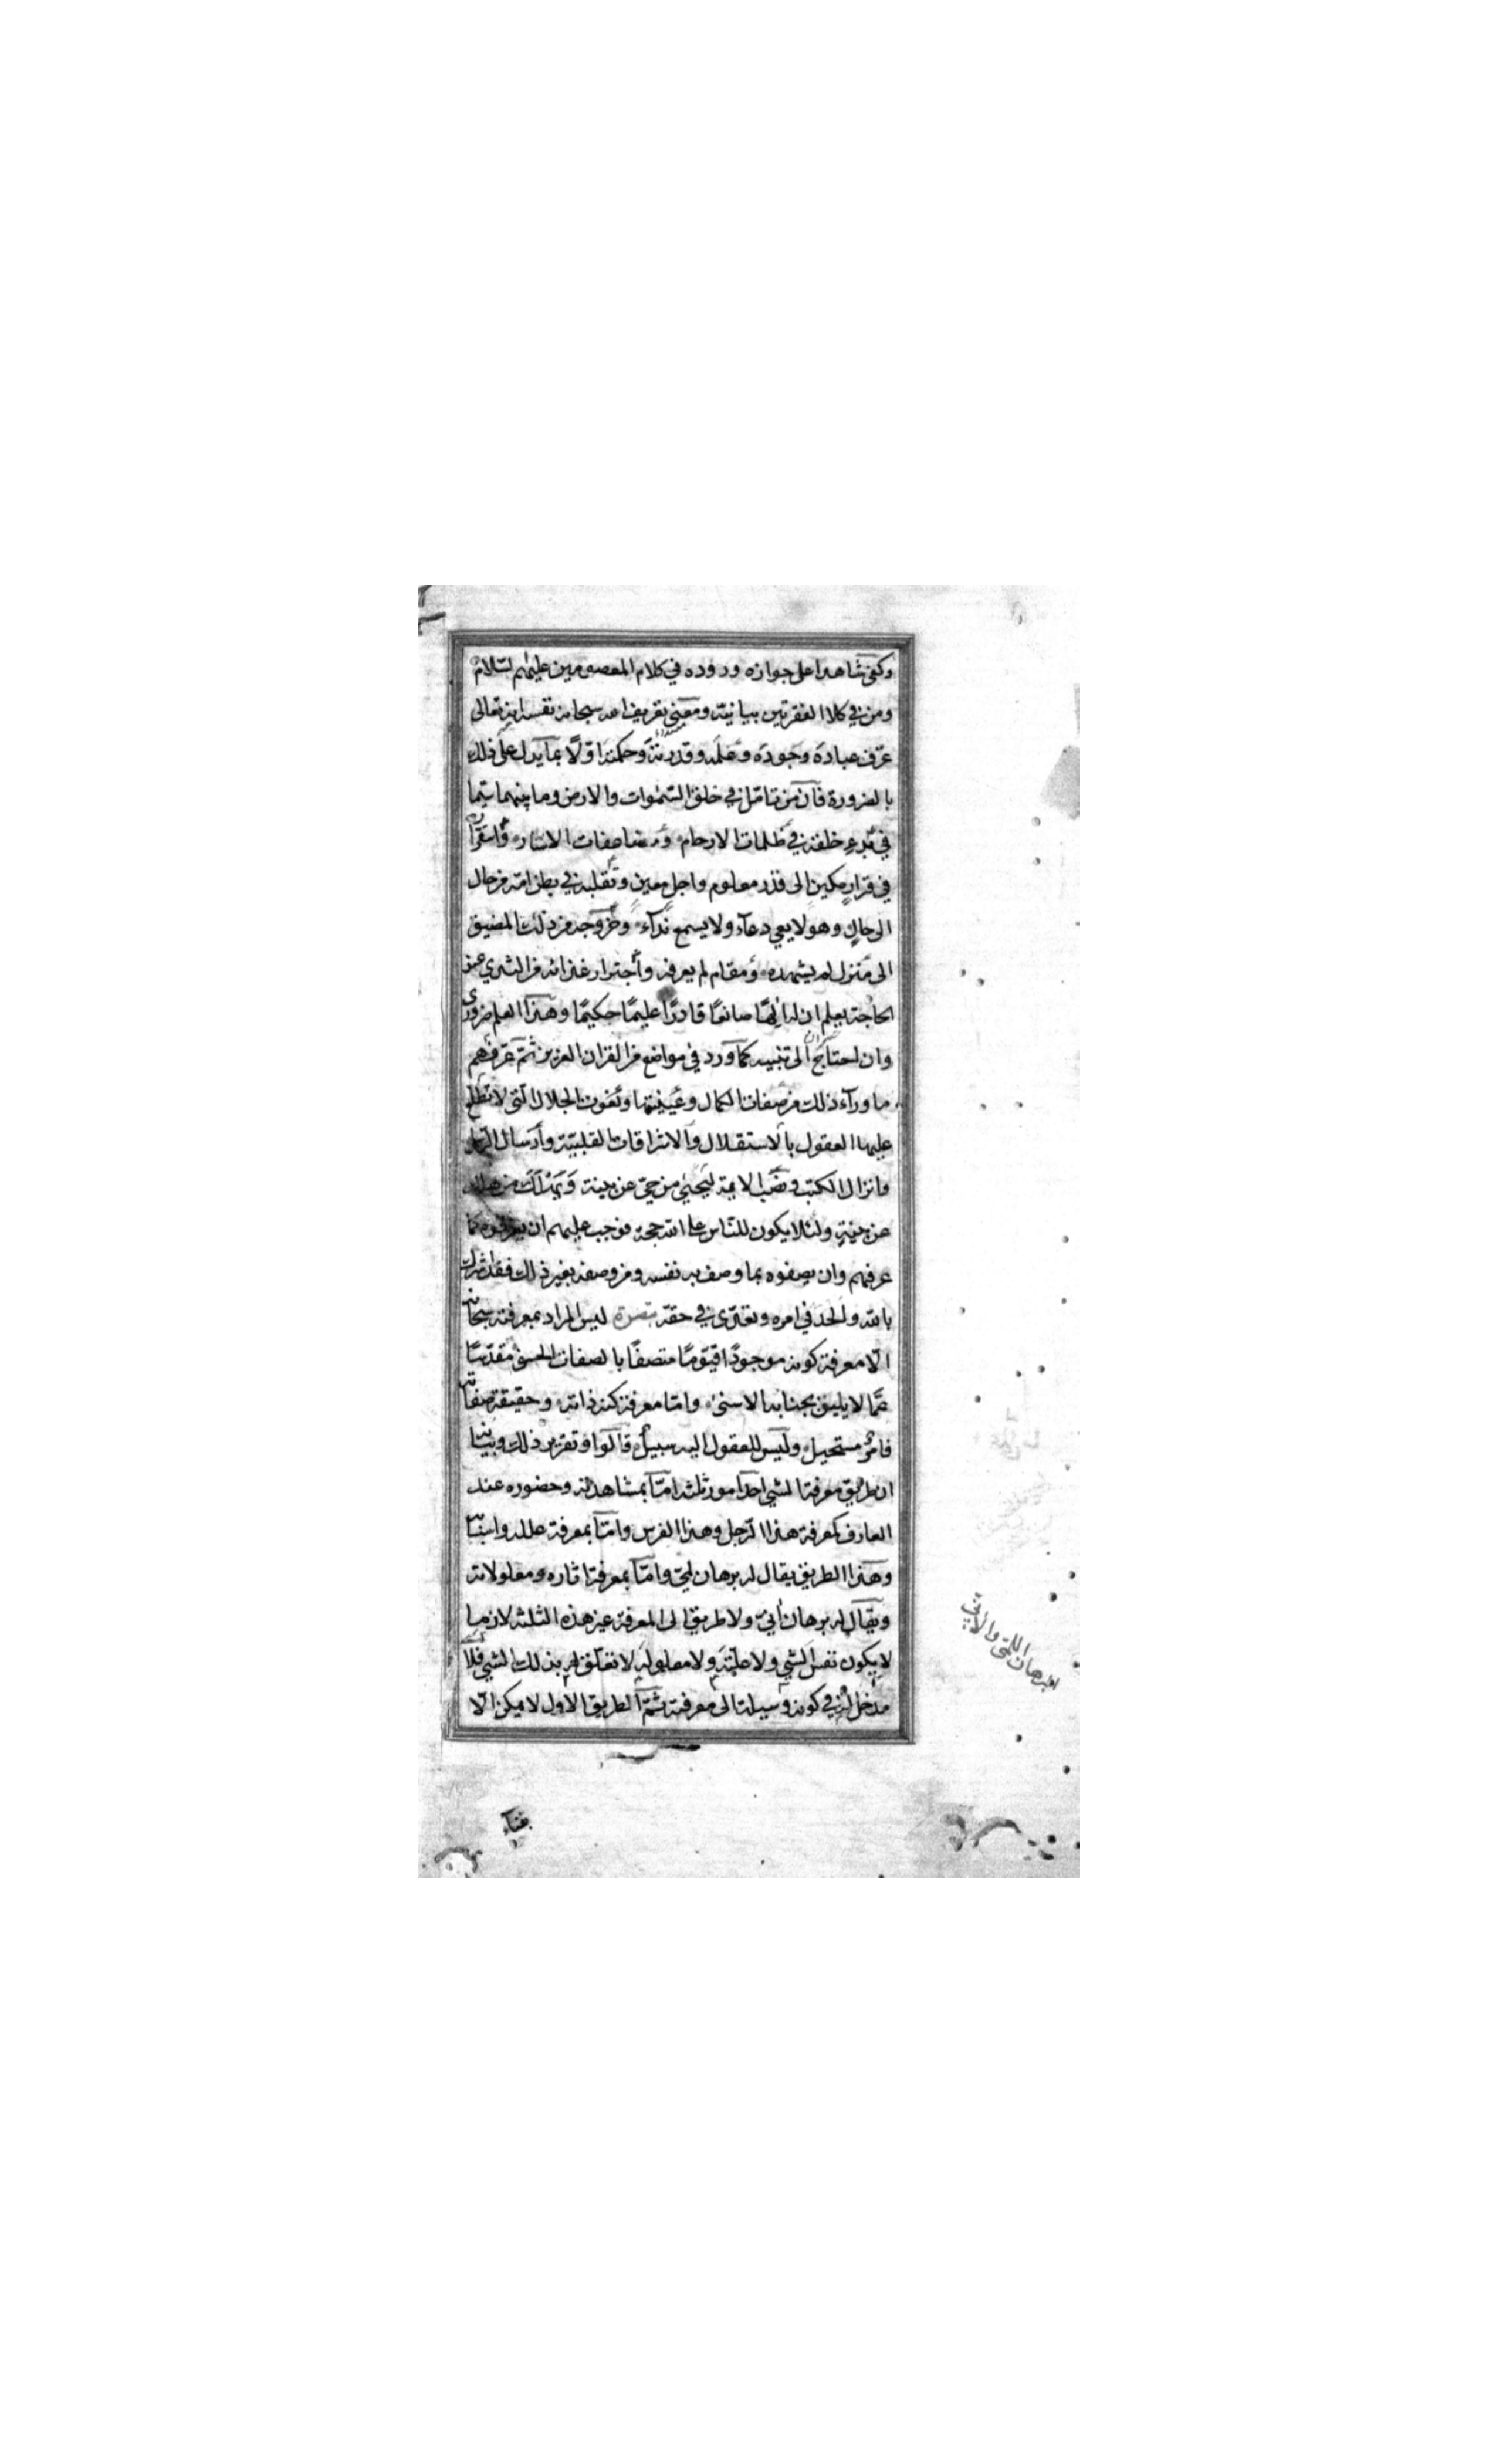 وكفى شاهدا على جوازه وروده في كلام المعصومين عليهم السلام
ومن في كلا الفقرتين بيانية ومعنى تعريف الله سبحانه نفسه انه تعالى
عرّف عباده وجوده وعلمه وقدرته وحكمته اوّلًا بما يدل على ذلك
بالضرورة فان من تامّل في خلق السّموات والارض وما بينهما سيّما
في بدء خلقه في ظلمات الارحام ومضاعفات الاستار واستقراره
في قرار مكين الى قدر معلوم واجل معين وتقلبه في بطن امّه من حال
الى حالٍ وهو لا يعي دعاء ولا يسمع نداء وخروجه من ذلك المضيق
الى منزل لم يشهده ومقام لم يعرفه واجترار غذائه من الثدي عند
الحاجة يعلم ان له الهًا صانعًا قادرًا عليمًا حكيمًا وهذا العلم ضروري
وان احتاج الى تنبيه كما ورد في مواضع من القران العزيز ثمّ عرّفهم
ما وراء ذلك من صفات الكمال وعينيتها ونعوت الجلال التي لا تطلع
عليها العقول بالاستقلال والاشراقات القلبيّة وارسال الرسل
وانزال الكتب ونصب الائمة ليحيى من حيّ عن بينة ويهلك من هلك
عن بينةٍ ولئلا يكون للنّاس على الله حجة فوجب عليهم ان يعرفوه كما
عرفهم وان يصفوه بما وصف به نفسه ومن وصفه بغير ذلك فقد اشرك
بالله والحد في امره وتعدّى في حقّه تبصرة ليس المراد بمعرفته سبحانه
الّا معرفة كونه موجودًا قيّومًا متصفًا بالصفات الحسنى مقدّسًا
عمّا لا يليق بجنابه الاسنى وامّا معرفة كنه ذاته وحقيقة صفاته
فامرٌ مستحيل وليس للعقول اليه سبيل قالوا وتقرير ذلك وبيانه
ان طريق معرفة الشي احد امور ثلثة امّا بمشاهدته وحضوره عند
العارف كمعرفة هذا الرّجل وهذا الفرس وامّا بمعرفة علله واسبابه
وهذا الطريق يقال له برهان لميّ وامّا بمعرفة اثاره ومعلولاته
ويقال له برهان انيّ ولا طريق الى المعرفة غير هذه الثلثة لان ما
لا يكون نفس الشي ولا علّته ولا معلوله لا تعلّق له بذلك الشي فلا
مدخل له في كونه وسيلة الى معرفته ثمّ الطريق الاول لا يمكن الّا
البرهان اللمّي والانّي